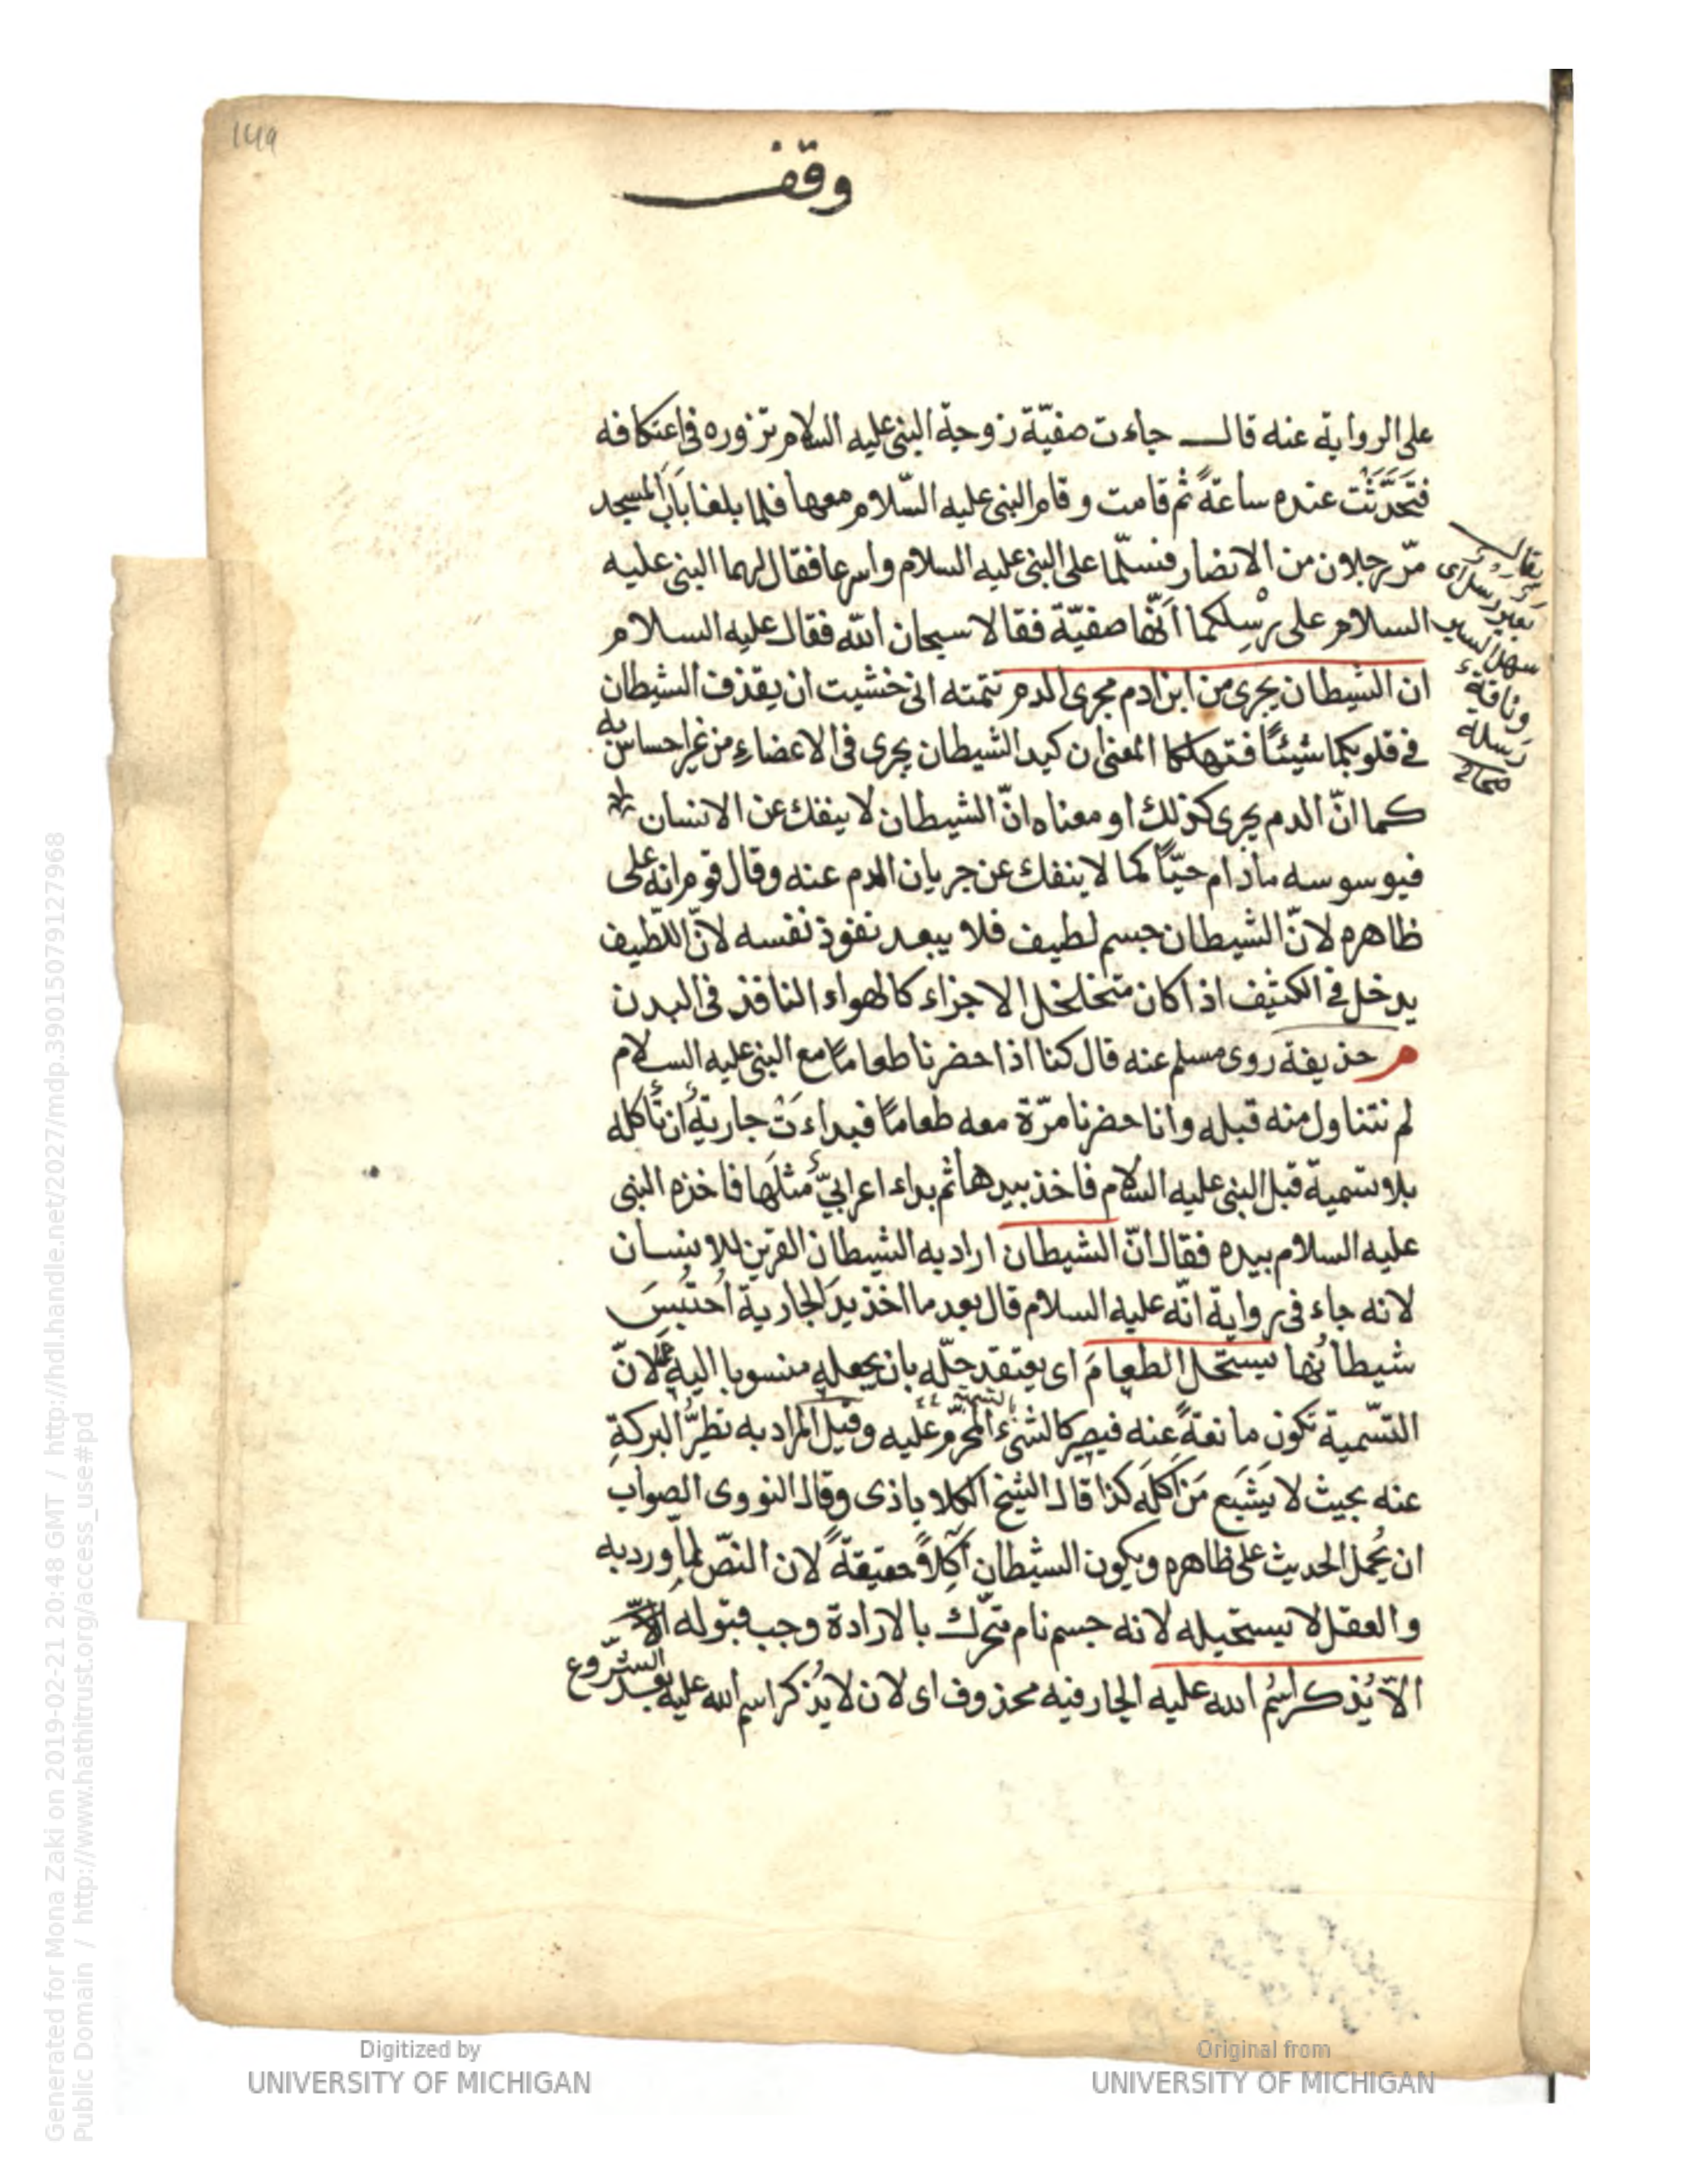 149
وقف
على الرواية عنه قال جاءت صفيّة زوجة النبى عليه السلام تزوره فى اعتكافه
فتَحَدَّثَت عنده ساعةً ثم قامت وقام النبى عليه السّلام معها فلما بلغا بابَ المسجد
مرّ رجلان من الانصار فسلّما على النبى عليه السلام واسرعا فقال لهما النبى عليه
السلام على رِسْلِكما انّها صفيّة فقالا سبحان الله فقال عليه السلام
ان الشيطان يجرى من ابن ادم مجرى الدم تتمته انى خشيت ان يقذف الشيطان
فى قلوبكما شيئًا فتهلكا المعنى ان كيد الشيطان يجرى فى الاعضاء من غير احساس به
كما انّ الدم يجرى كذلك او معناه انّ الشيطان لا ينفك عن الانسان
فيوسوسه مادام حيّاً كما لا ينفك عن جريان الدم عنه وقال قوم انه على
ظاهره لانّ الشيطان جسم لطيف فلا يبعد نفوذ نفسه لانّ اللّطيف
يدخل فى الكثيف اذا كان متخلخل الاجزاء كالهواء النافذ فى البدن
م حذيفة روى مسلم عنه قال كنا اذا حضرنا طعامًا مع النبى عليه السلام
لم نتناول منه قبله وانا حضرنا مرّة معه طعامًا فبداءَتْ جاريةٌ ان تأكله
بلا تسمية قبل النبى عليه السلام فاخذ بيدها ثم بداء اعرابىٌّ مثلَها فاخذه النبى
عليه السلام بيده فقال انّ الشيطان اراد به الشيطان القرين للانسان
لانه جاء فى رواية انّه عليه السلام قال بعد ما اخذ يدَ الجارية احتُبِسَ
شيطانُها يستحل الطعامَ اى يعتقد حلّه بان يجعله منسوبا اليه لانّ
التسّمية تكون مانعةً عنه فيصير كالشىء المحرّم عليه وقيل المراد به تطيُّر البركةِ
عنه بحيث لا يَشْبَع مَن اكَلَه كذا قال الشيخ الكلاباذى وقال النووى الصواب
ان يُحمَل الحديث على ظاهره ويكون الشيطان آكِلاً حقيقةً لان النصّ لما ورد به
والعقل لا يستحيله لانه جسم نام متحرّك بالارادة وجب قبوله
الاّ يُذكَر اسمُ الله عليه الجار فيه محذوف اى لان لا يُذكر اسم الله عليه بعد الشروع
يقال
بعير رسل اى
سهل السير
وناقة
رسلة
صحاح
Digitized by
UNIVERSITY OF MICHIGAN
Original from
UNIVERSITY OF MICHIGAN
Generated for Mona Zaki on 2019-02-21 20:48 GMT / http://hdl.handle.net/2027/mdp.39015079127968
Public Domain / http://www.hathitrust.org/access_use#pd